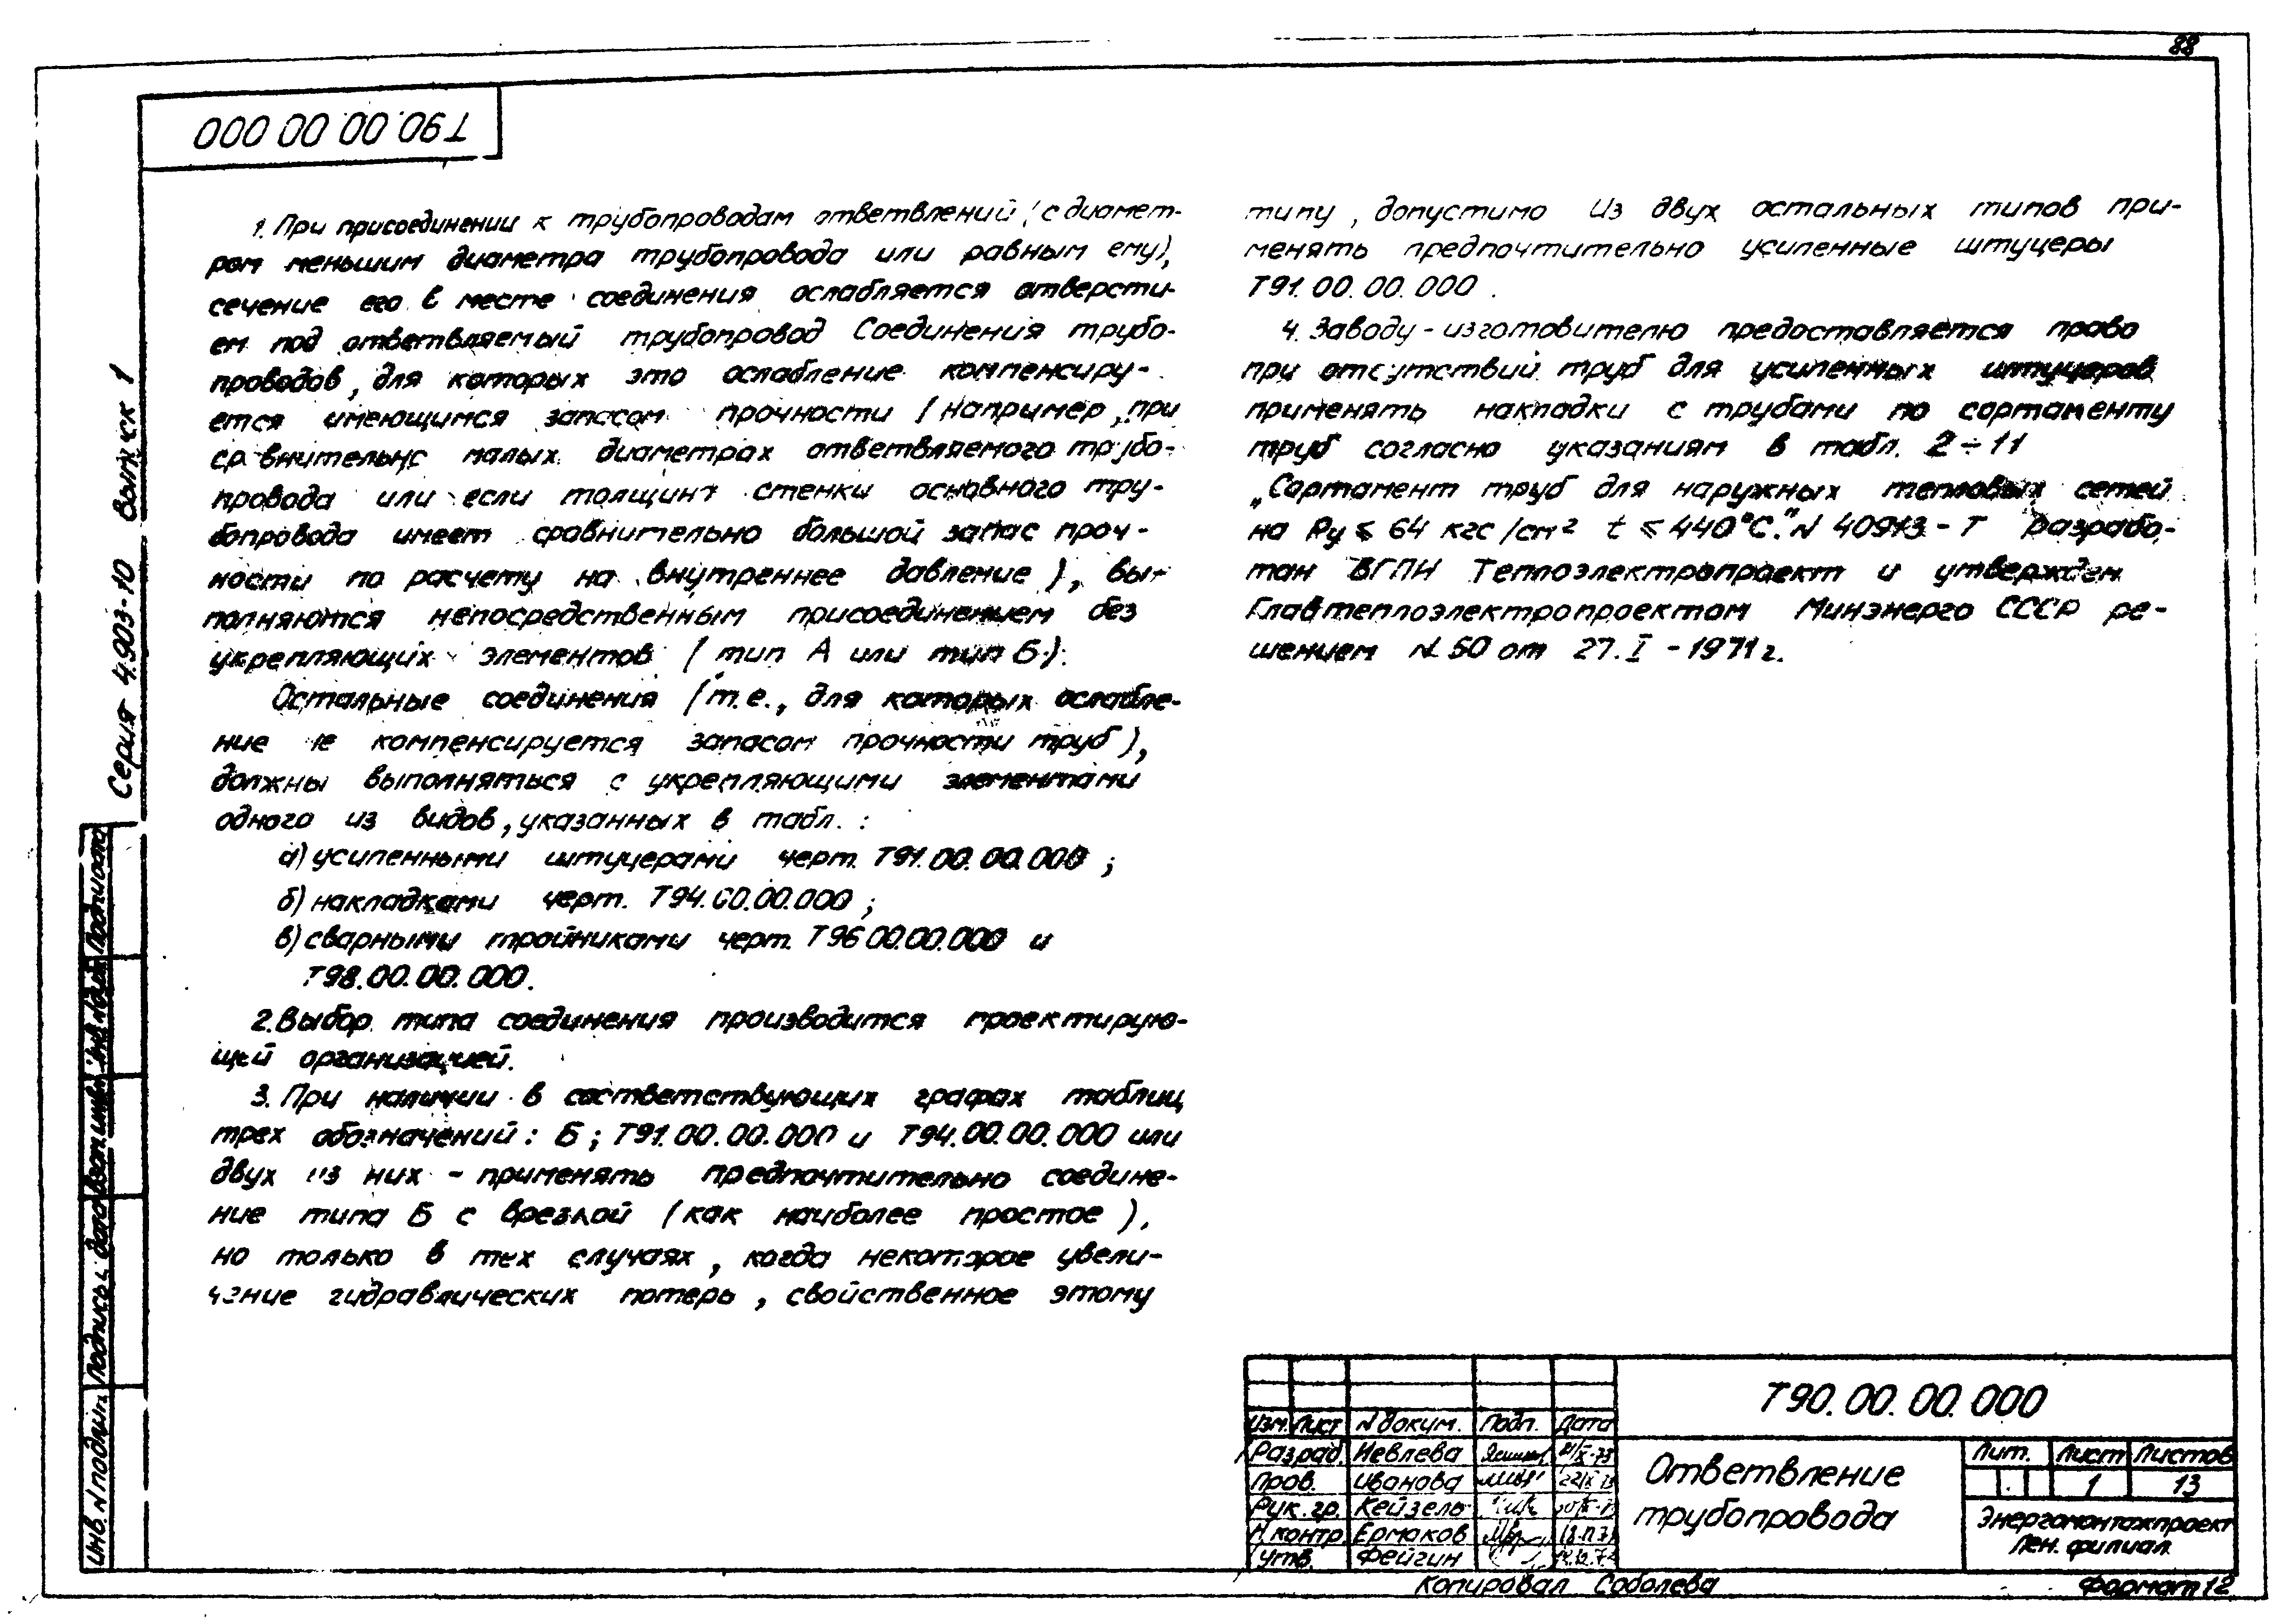 88
Т90.00.00.000
Серия 4.903-10 Выпуск 1
1. При присоединении к трубопроводам ответвлений (с диамет-
ром меньшим диаметра трубопровода или равным ему),
сечение его в месте соединения ослабляется отверсти-
ем под ответвляемый трубопровод Соединения трубо-
проводов, для которых это ослабление компенсиру-
ется имеющимся запасом прочности (например, при
сравнительно малых диаметрах ответвляемого трубо-
провода или если толщина стенки основного тру-
бопровода имеет сравнительно большой запас проч-
ности по расчету на внутреннее давление), вы-
полняются непосредственным присоединением без
укрепляющих элементов (тип А или тип Б).
Остальные соединения (т.е., для которых ослабле-
ние не компенсируется запасом прочности труб),
должны выполняться с укрепляющими элементами
одного из видов, указанных в табл. :
а) усиленными штуцерами черт. Т91.00.00.000 ;
б) накладками черт. Т94.00.00.000 ;
в) сварными тройниками черт. Т96 00.00.000 и
Т98.00.00.000.
2. Выбор типа соединения производится проектирую-
щей организацией.
3. При наличии в соответствующих графах таблиц
трех обозначений: Б; Т91.00.00.000 и Т94.00.00.000 или
двух из них - применять предпочтительно соедине-
ние типа Б с врезкой (как наиболее простое),
но только в тех случаях, когда некоторое увели-
чение гидравлических потерь, свойственное этому
типу, допустимо Из двух остальных типов при-
менять предпочтительно усиленные штуцеры
Т91.00.00.000 .
4. Заводу-изготовителю предоставляется право
при отсутствий труб для усиленных штуцеров
применять накладки с трубами по сортаменту
труб согласно указаниям в табл. 2÷11
„Сортамент труб для наружных тепловых сетей
на Ру ≤ 64 кгс/см² t ≤ 440°С." N 40913-Т разрабо-
тан ВГПИ Теплоэлектропроект и утвержден
Главтеплоэлектропроектом Минэнерго СССР ре-
шением N 50 от 27.I - 1971г.
Инв. N подл. Подпись и дата Взам инв Инв N дубл Подпись дата
Т90.00.00.000
Изм. Лист N докум. Подп. Дата
Разраб. Иевлева
Пров. Иванова
Рук. гр. Кейзель
Н. контр Ермаков
Утв. Фейгин
Ответвление
трубопровода
Лит. Лист Листов
1 13
Энергомонтажпроект
Лен. филиал
Копировал Соболева
Формат 12